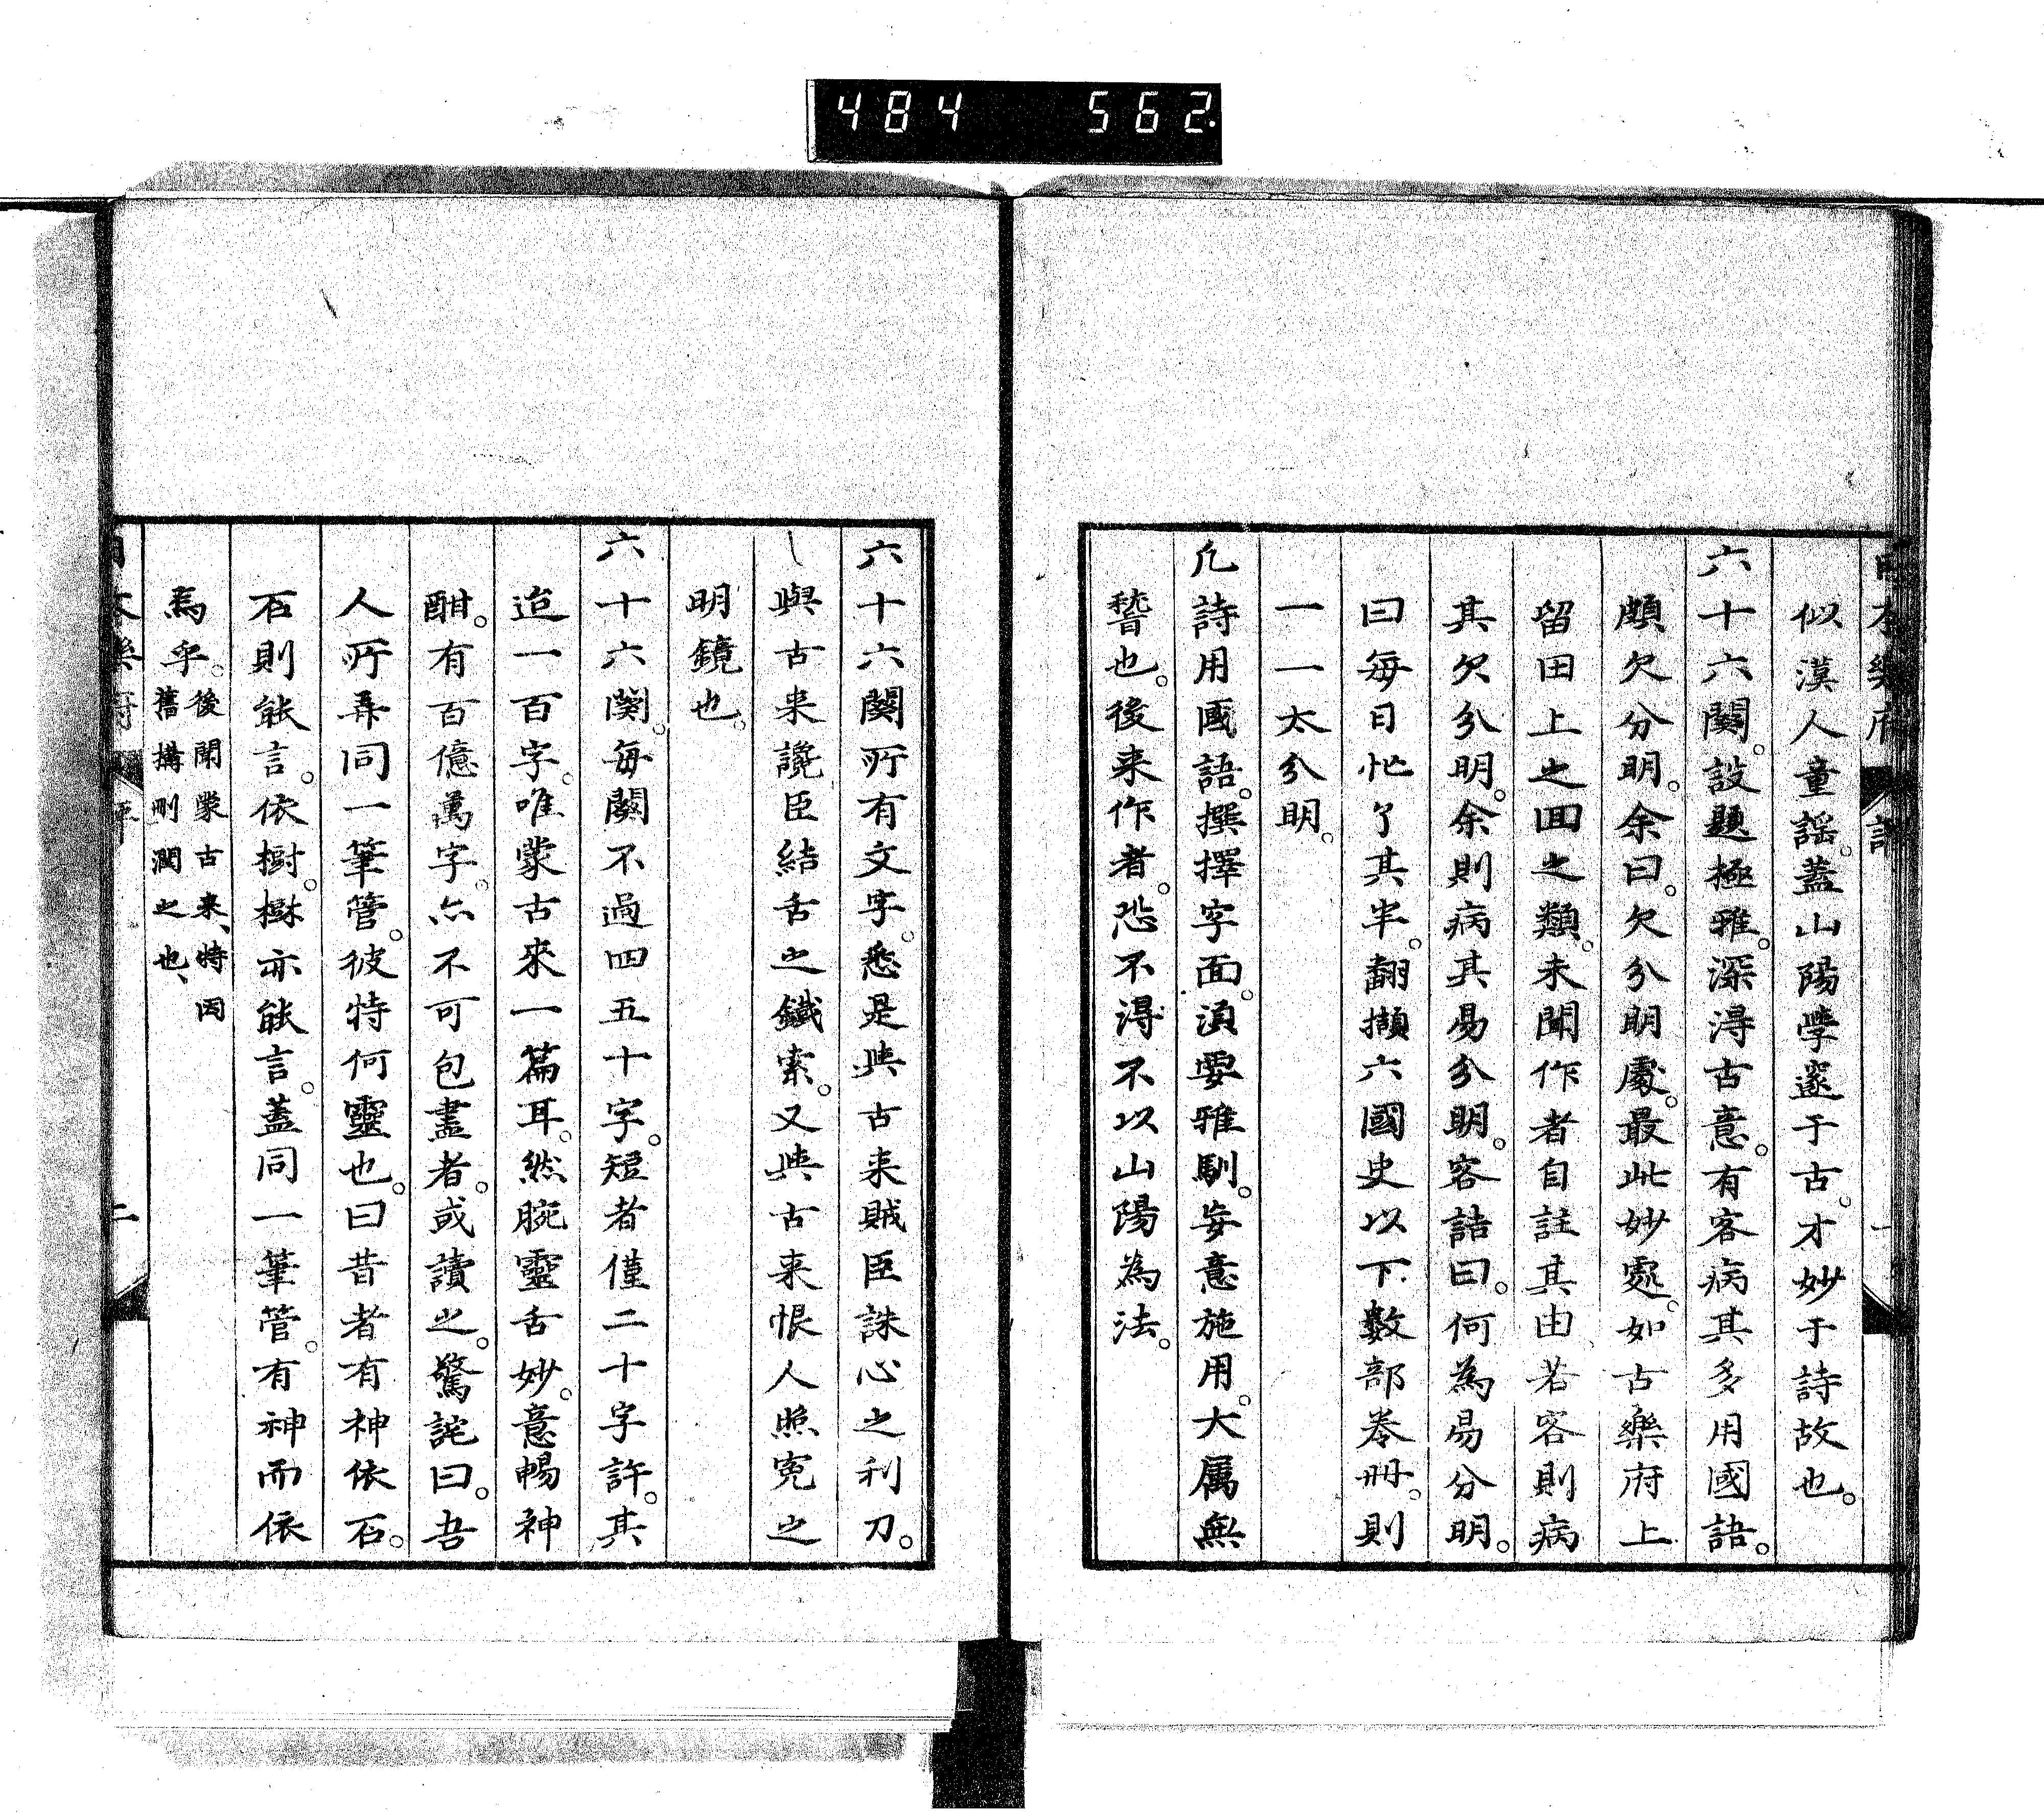 484 562
日本樂府 評 一
似漢人童謡。蓋山陽學邃于古。才妙于詩故也。
六十六闋。設題極雅。深淂古意。有客病其多用國語。
頗欠分明。余曰。欠分明處。最此妙處。如古樂府上
留田上之回之類。未聞作者自註其由。若客則病
其欠分明。余則病其易分明。客詰曰。何為易分明。
曰每日忙了其半。翻擷六國史以下數部卷冊。則
一一太分明。
凡詩用國語。撰擇字面。須要雅馴。妄意施用。大属無
稽也。後来作者。恐不淂不以山陽為法。
六十六闋所有文字。悉是與古来賊臣誅心之利刀。
與古来讒臣結舌之鐵索。又與古来恨人照寃之
明鏡也。
六十六闋。每闋不過四五十字。短者僅二十字許。其
迨一百字。唯蒙古來一篇耳。然腕靈舌妙。意暢神
酣。有百億萬字。亦不可包盡者。或讀之。驚詫曰。吾
人所弄同一筆管。彼特何靈也。曰昔者有神依石。
石則能言。依樹。樹亦能言。蓋同一筆管。有神而依
焉乎。後聞蒙古来、特因
舊搆刪潤之也、
日本樂府 評 二